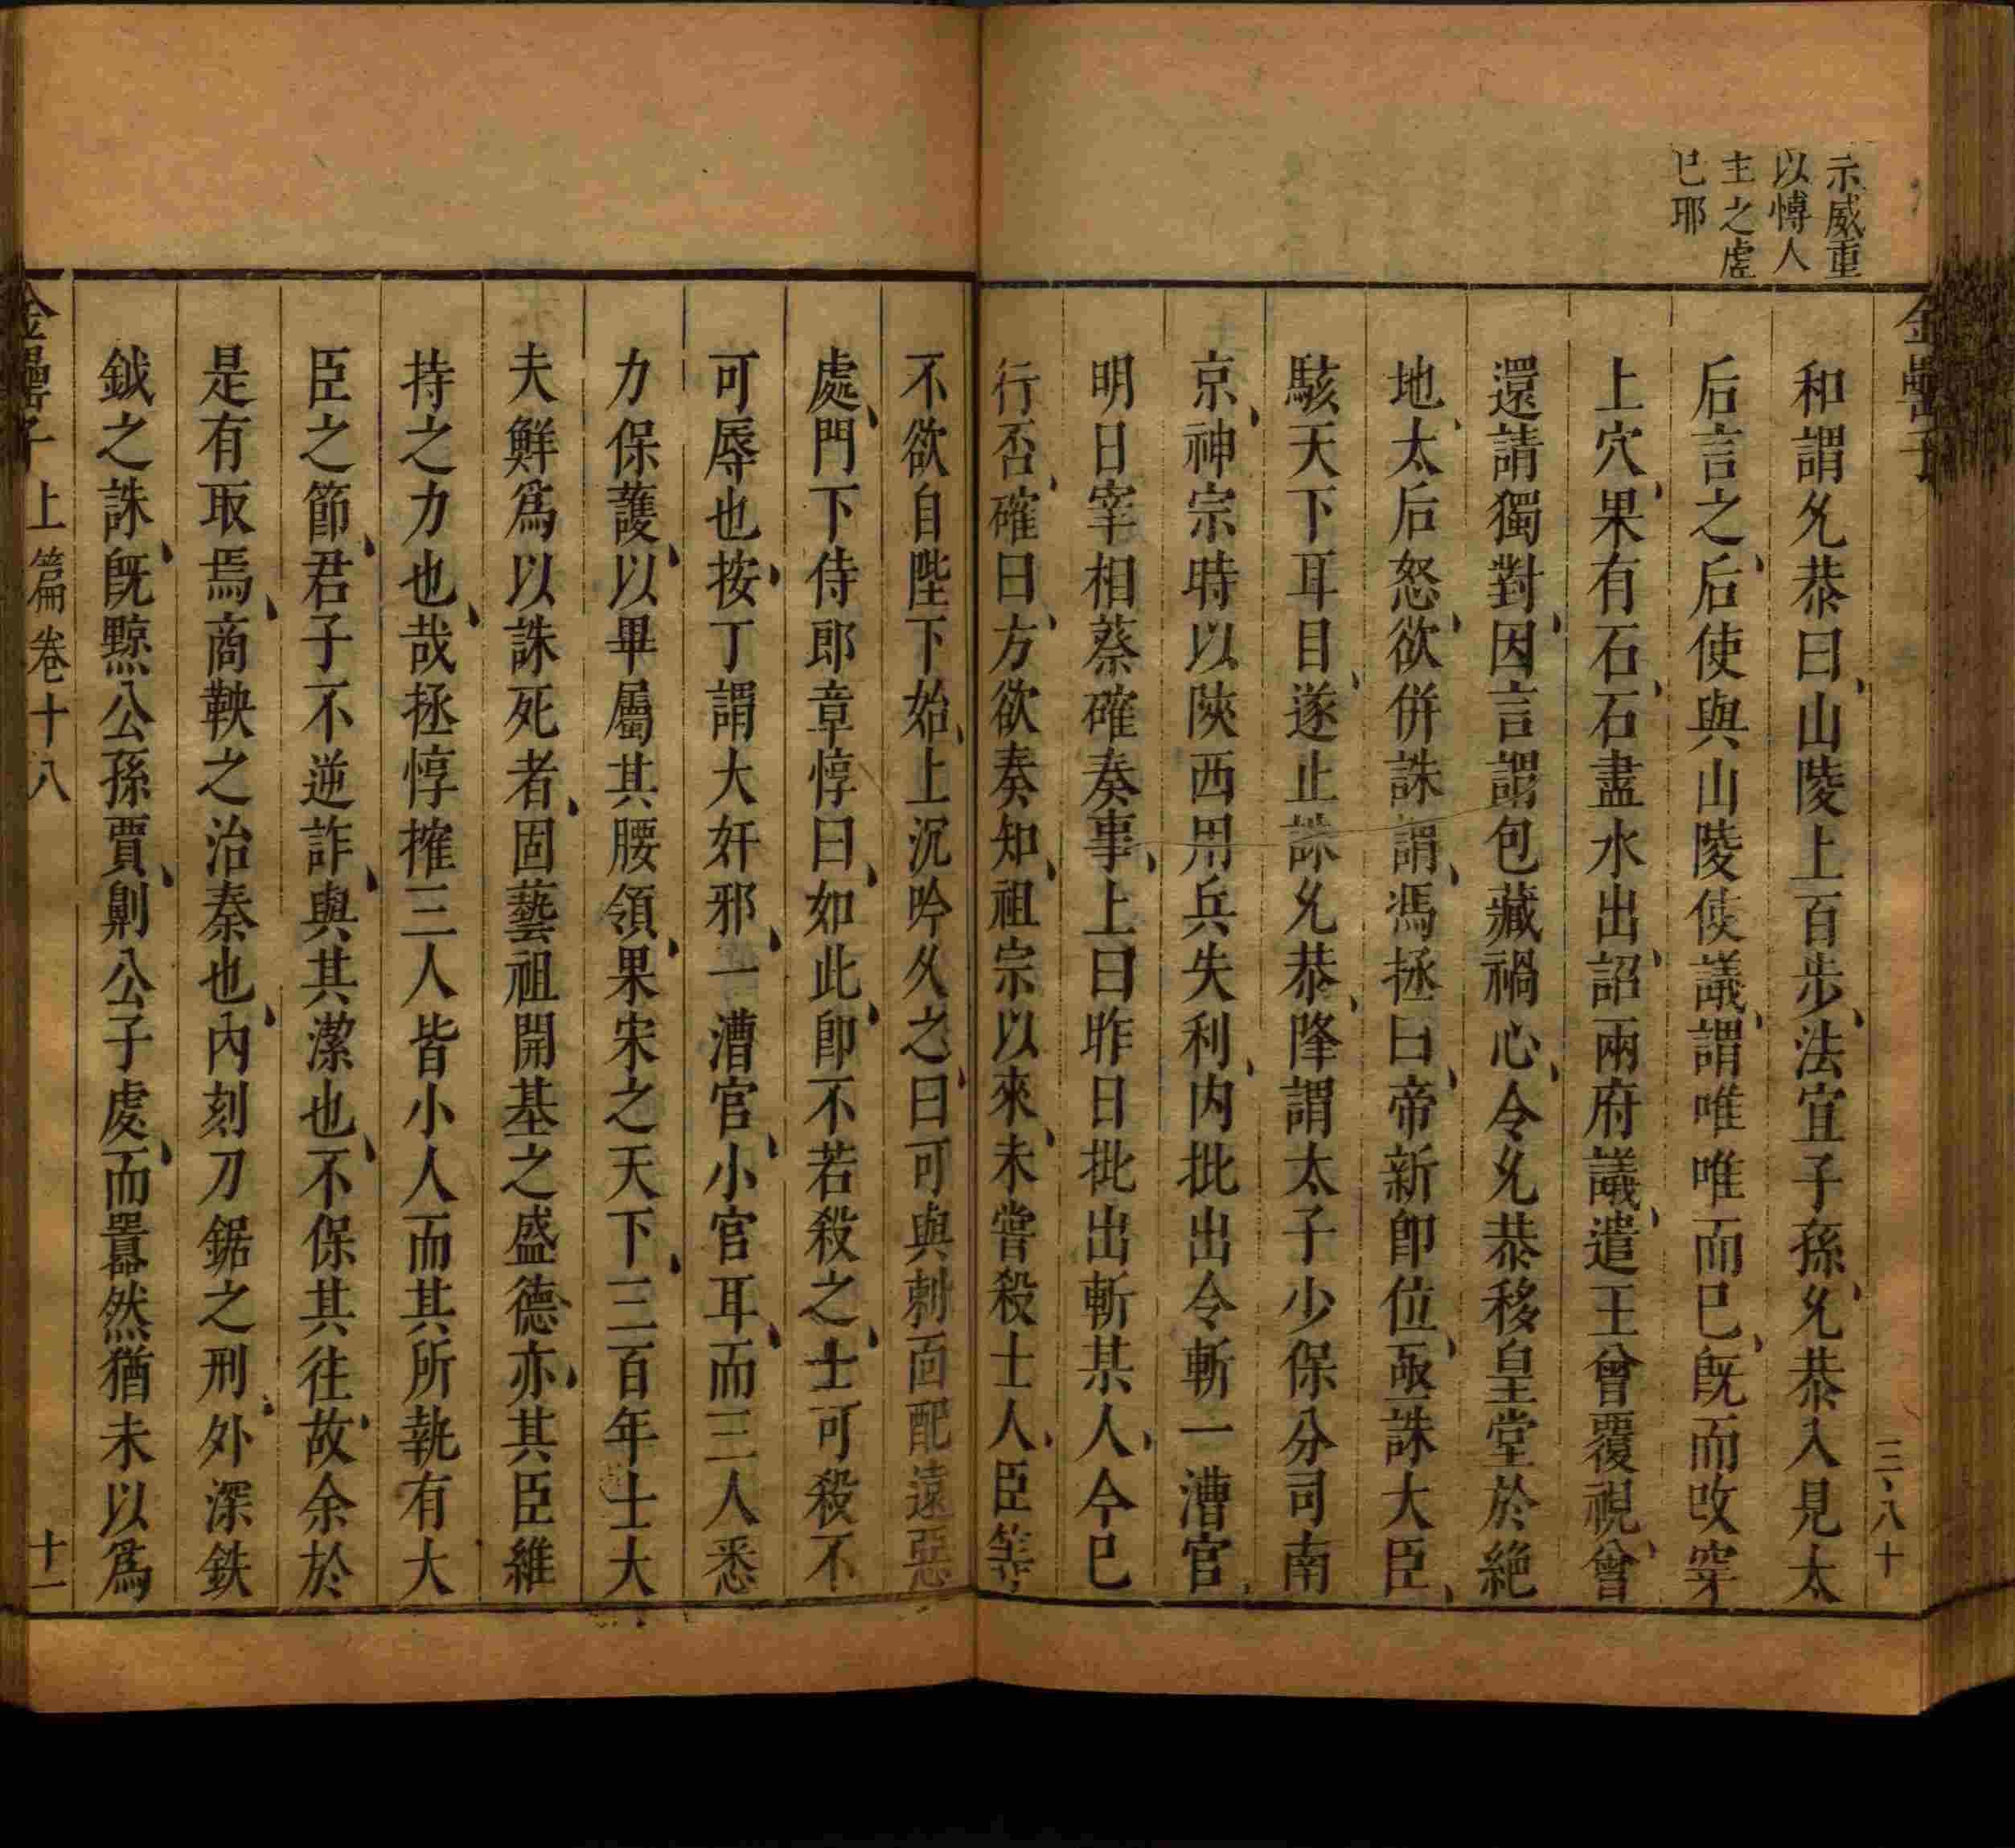 示威重
以愽人
主之虐
已耶
金罍子
三、八十
和謂允恭曰、山陵上百步、法宜子孫、允恭入見太
后言之、后使與山陵使議、謂唯唯而已、既而改穿
上穴、果有石、石盡水出、詔兩府議、遣王曾覆視、曾
還請獨對、因言謂包藏禍心、令允恭移皇堂於絶
地、太后怒、欲併誅謂、馮拯曰、帝新卽位、亟誅大臣、
駭天下耳目、遂止誅允恭、降謂太子少保分司南
京、神宗時以陝西用兵失利、内批出令斬一漕官、
明日宰相蔡確奏事、上曰昨日批出斬某人、今已
行否、確曰、方欲奏知、祖宗以來、未嘗殺士人、臣等
不欲自陛下始、上沉吟久之、曰可與刺面配遠惡
處、門下侍郎章惇曰、如此、卽不若殺之、士可殺不
可辱也、按丁謂大奸邪、一漕官、小官耳、而三人悉
力保護、以畢屬其腰領、果宋之天下、三百年士大
夫鮮爲以誅死者、固藝祖開基之盛德、亦其臣維
持之力也、哉拯惇㩁三人皆小人而其所執有大
臣之節、君子不逆詐、與其潔也、不保其往、故余於
是有取焉、商鞅之治秦也、內刻刀鋸之刑、外深鈇
鉞之誅、旣黥公孫賈、劓公子虔、而囂然猶未以爲
金罍子 上篇卷十八
十一